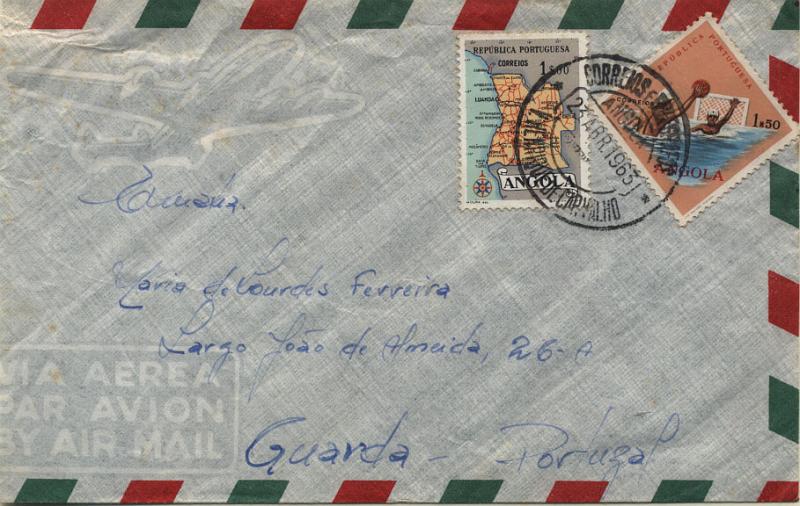 REPÚBLICA PORTUGUESA
CORREIOS
1$00
LUANDA
ANGOLA
REPÚBLICA PORTUGUESA
CORREIOS
1$50
ANGOLA
CORREIOS
ANGOLA
24ABR.1963
HENRIQUE DE CARVALHO
Maria de Lourdes Ferreira
Largo João de Almeida, 26-A
Guarda - Portugal
VIA AEREA
PAR AVION
BY AIR MAIL